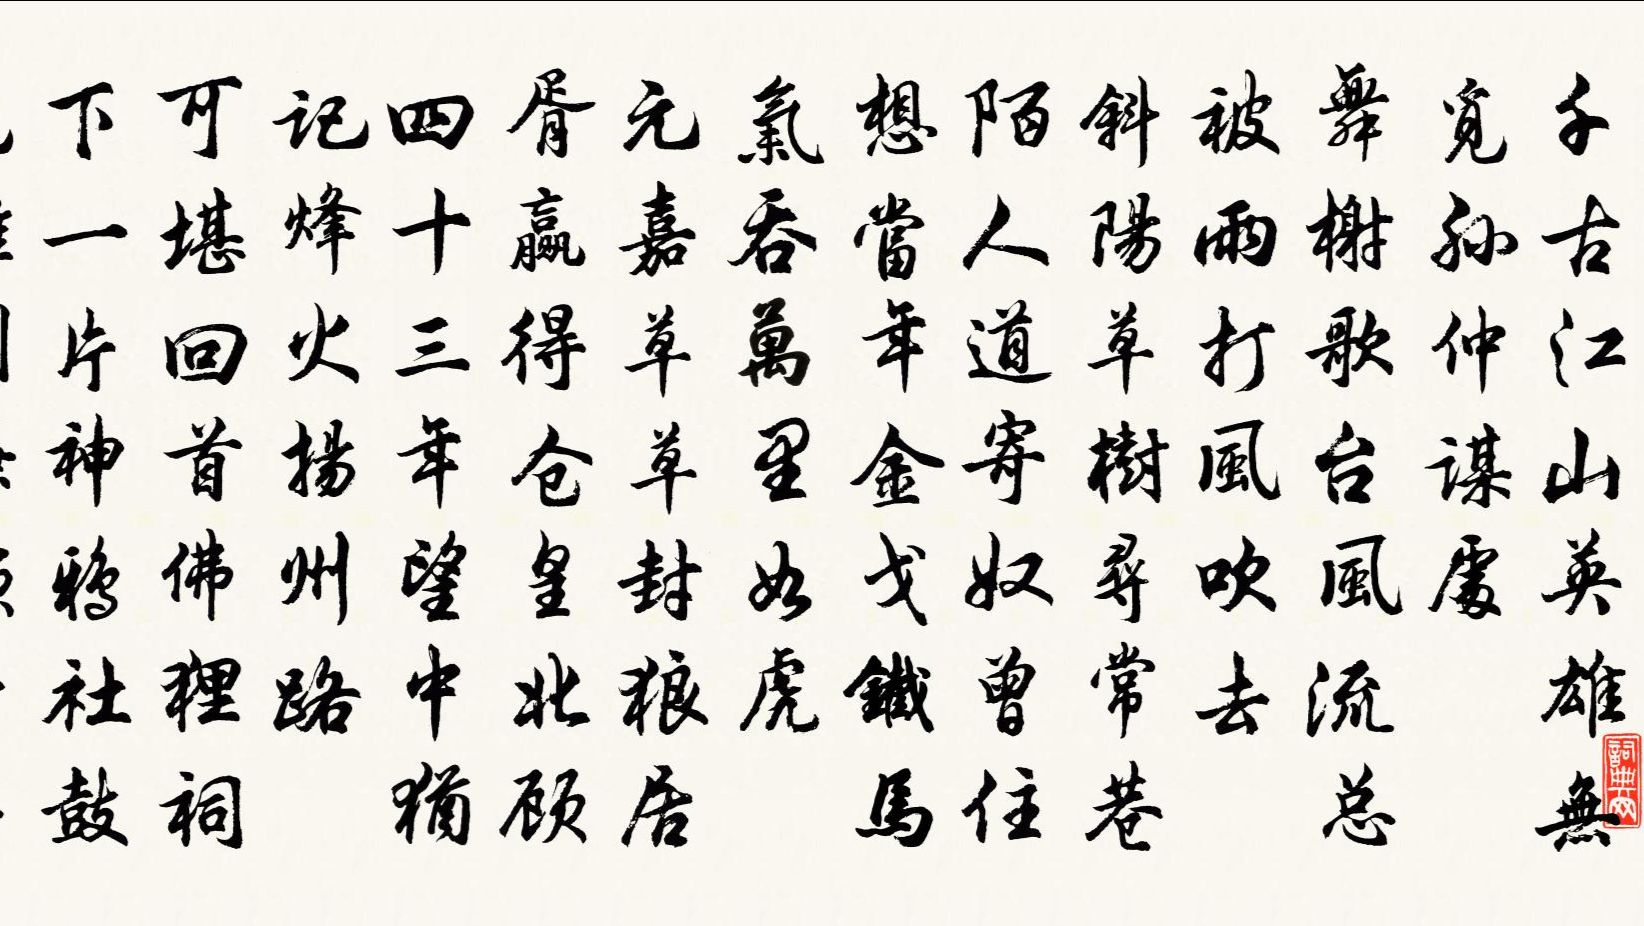 千古江山英雄無
覓孫仲謀處
舞榭歌台風流总
被雨打風吹去
斜陽草樹尋常巷
陌人道寄奴曾住
想當年金戈鐵馬
氣吞萬里如虎
元嘉草草封狼居
胥贏得仓皇北顾
四十三年望中猶
記烽火揚州路
可堪回首佛狸祠
下一片神鴉社鼓
詞典网